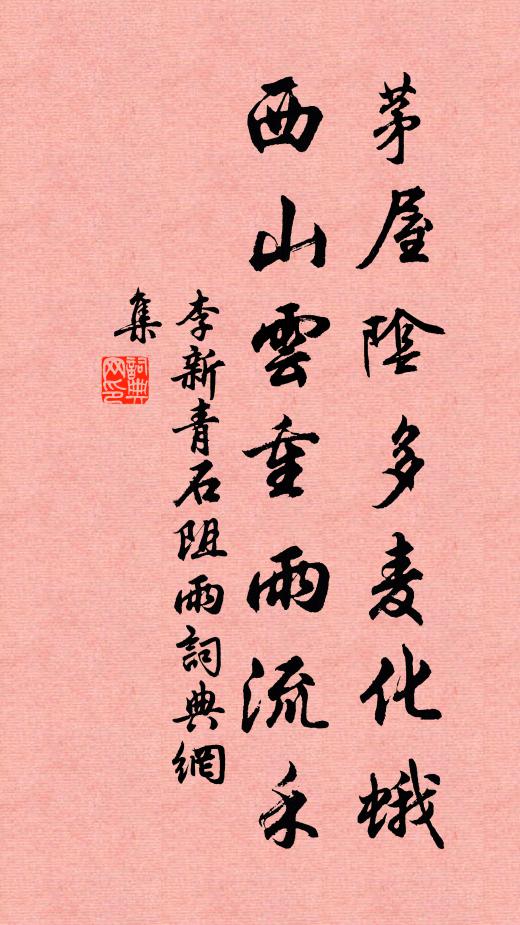 茅屋陰多麦化蛾
西山雲重雨流禾
李新青石阻雨詞典網
集
詞典
网印